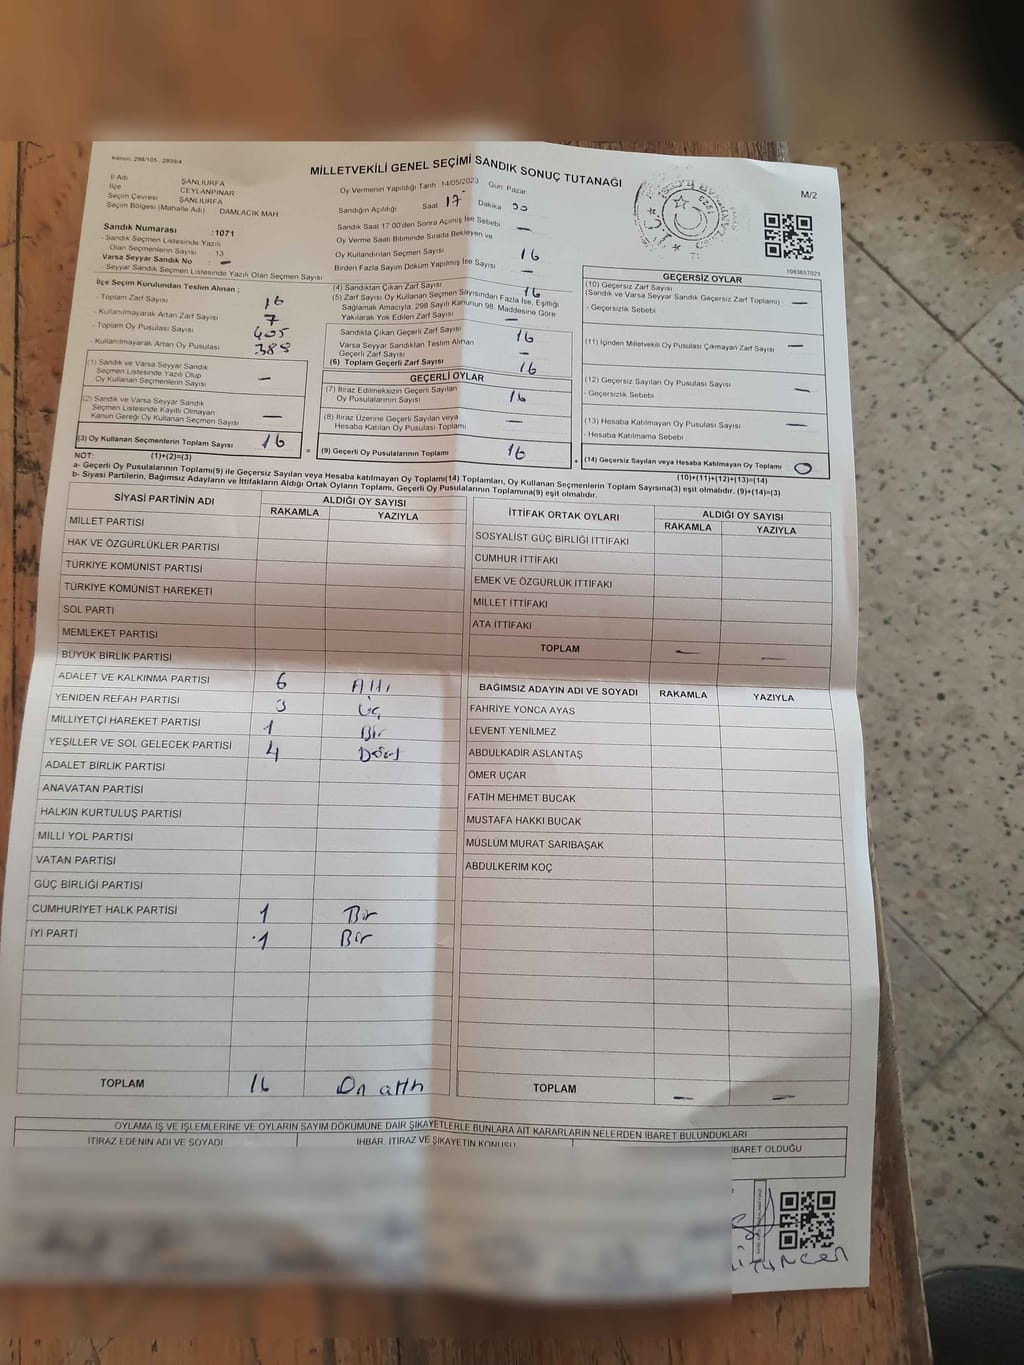 Kanun: 298/105 , 2839/4
MİLLETVEKİLİ GENEL SEÇİMİ SANDIK SONUÇ TUTANAĞI
M/2
İl Adı ŞANLIURFA
İlçe CEYLANPINAR
Seçim Çevresi ŞANLIURFA
Seçim Bölgesi (Mahalle Adı) DAMLACIK MAH.
Oy Vermenin Yapıldığı Tarih 14/05/2023 Gün: Pazar
Sandığın Açıldığı Saat 17 Dakika 00
Sandık Saat 17.00'den Sonra Açılmış İse Sebebi —
Oy Verme Saati Bitiminde Sırada Bekleyen ve
Oy Kullandırılan Seçmen Sayısı 16
Birden Fazla Sayım Döküm Yapılmış İse Sayısı —
Sandık Numarası :1071
- Sandık Seçmen Listesinde Yazılı
Olan Seçmenlerin Sayısı : 13
Varsa Seyyar Sandık No —
- Seyyar Sandık Seçmen Listesinde Yazılı Olan Seçmen Sayısı
1083657023
İlçe Seçim Kurulundan Teslim Alınan ;
- Toplam Zarf Sayısı 16
- Kullanılmayarak Artan Zarf Sayısı 7
- Toplam Oy Pusulası Sayısı 405
- Kullanılmayarak Artan Oy Pusulası 389
(1) Sandık ve Varsa Seyyar Sandık
Seçmen Listesinde Yazılı Olup
Oy Kullanan Seçmenlerin Sayısı —
(2) Sandık ve Varsa Seyyar Sandık
Seçmen Listesinde Kayıtlı Olmayan
Kanun Gereği Oy Kullanan Seçmen Sayısı —
(3) Oy Kullanan Seçmenlerin Toplam Sayısı 16
(4) Sandıktan Çıkan Zarf Sayısı 16
(5) Zarf Sayısı Oy Kullanan Seçmen Sayısından Fazla İse, Eşitliği
Sağlamak Amacıyla, 298 Sayılı Kanunun 98. Maddesine Göre
Yakılarak Yok Edilen Zarf Sayısı —
Sandıkta Çıkan Geçerli Zarf Sayısı 16
Varsa Seyyar Sandıktan Teslim Alınan
Geçerli Zarf Sayısı —
(6) Toplam Geçerli Zarf Sayısı 16
GEÇERLİ OYLAR
(7) İtiraz Edilmeksizin Geçerli Sayılan
Oy Pusulalarının Sayısı 16
(8) İtiraz Üzerine Geçerli Sayılan veya
Hesaba Katılan Oy Pusulası Toplamı —
= (9) Geçerli Oy Pusulalarının Toplamı 16
GEÇERSİZ OYLAR
(10) Geçersiz Zarf Sayısı
(Sandık ve Varsa Seyyar Sandık Geçersiz Zarf Toplamı) —
- Geçersizlik Sebebi
(11) İçinden Milletvekili Oy Pusulası Çıkmayan Zarf Sayısı —
(12) Geçersiz Sayılan Oy Pusulası Sayısı —
- Geçersizlik Sebebi
(13) Hesaba Katılmayan Oy Pusulası Sayısı —
- Hesaba Katılmama Sebebi
+ (14) Geçersiz Sayılan veya Hesaba Katılmayan Oy Toplamı 0
NOT: (1)+(2)=(3)
(10)+(11)+(12)+(13)=(14)
a- Geçerli Oy Pusulalarının Toplamı(9) ile Geçersiz Sayılan veya Hesaba katılmayan Oy Toplamı(14) Toplamları, Oy Kullanan Seçmenlerin Toplam Sayısına(3) eşit olmalıdır. (9)+(14)=(3)
b- Siyasi Partilerin, Bağımsız Adayların ve İttifakların Aldığı Ortak Oyların Toplamı, Geçerli Oy Pusulalarının Toplamına(9) eşit olmalıdır.
SİYASİ PARTİNİN ADI ALDIĞI OY SAYISI
RAKAMLA YAZIYLA
MİLLET PARTİSİ
HAK VE ÖZGÜRLÜKLER PARTİSİ
TÜRKİYE KOMÜNİST PARTİSİ
TÜRKİYE KOMÜNİST HAREKETİ
SOL PARTİ
MEMLEKET PARTİSİ
BÜYÜK BİRLİK PARTİSİ
ADALET VE KALKINMA PARTİSİ 6 Altı
YENİDEN REFAH PARTİSİ 3 Üç
MİLLİYETÇİ HAREKET PARTİSİ 1 Bir
YEŞİLLER VE SOL GELECEK PARTİSİ 4 Dört
ADALET BİRLİK PARTİSİ
ANAVATAN PARTİSİ
HALKIN KURTULUŞ PARTİSİ
MİLLİ YOL PARTİSİ
VATAN PARTİSİ
GÜÇ BİRLİĞİ PARTİSİ
CUMHURİYET HALK PARTİSİ 1 Bir
İYİ PARTİ 1 Bir
TOPLAM 16 On altı
İTTİFAK ORTAK OYLARI ALDIĞI OY SAYISI
RAKAMLA YAZIYLA
SOSYALİST GÜÇ BİRLİĞİ İTTİFAKI
CUMHUR İTTİFAKI
EMEK VE ÖZGÜRLÜK İTTİFAKI
MİLLET İTTİFAKI
ATA İTTİFAKI
TOPLAM — —
BAĞIMSIZ ADAYIN ADI VE SOYADI RAKAMLA YAZIYLA
FAHRİYE YONCA AYAS
LEVENT YENİLMEZ
ABDULKADİR ASLANTAŞ
ÖMER UÇAR
FATİH MEHMET BUCAK
MUSTAFA HAKKI BUCAK
MÜSLÜM MURAT SARIBAŞAK
ABDULKERİM KOÇ
TOPLAM — —
OYLAMA İŞ VE İŞLEMLERİNE VE OYLARIN SAYIM DÖKÜMÜNE DAİR ŞİKAYETLERLE BUNLARA AİT KARARLARIN NELERDEN İBARET BULUNDUKLARI
İTİRAZ EDENİN ADI VE SOYADI İHBAR, İTİRAZ VE ŞİKAYETİN KONUSU İBARET OLDUĞU